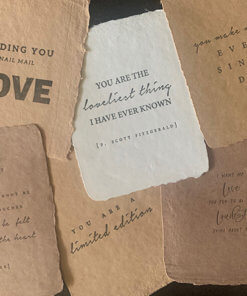 DING YOU
NAIL MAIL
OVE
YOU ARE THE
loveliest thing
I HAVE EVER KNOWN
[F. SCOTT FITZGERALD]
you make
EVE
SIN
YOU ARE A
limited edition
be felt
the heart
I WANT MY
Love
FOR YOU TO BE
Loudest